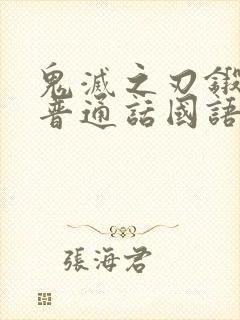 鬼滅之刃鍛
普通話國語
張海君